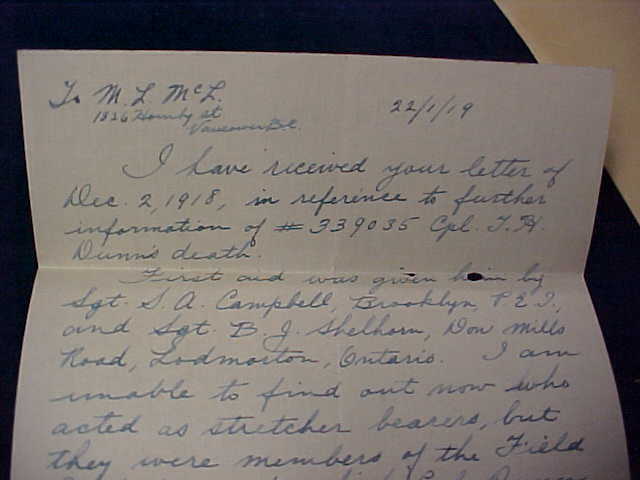 To M. L. McL.
1826 Hornby st
Vancouver B.C.
22/1/19
I have received your letter of
Dec. 2, 1918, in reference to further
information of # 339035 Cpl. T. H.
Dunn's death.
First aid was given him by
Sgt. S. A. Campbell, Brooklyn, P.E.I.,
and Sgt. B. J. Shelhorn, Don Mills
Road, Todmorton, Ontario. I am
unable to find out now who
acted as stretcher bearers, but
they were members of the Field